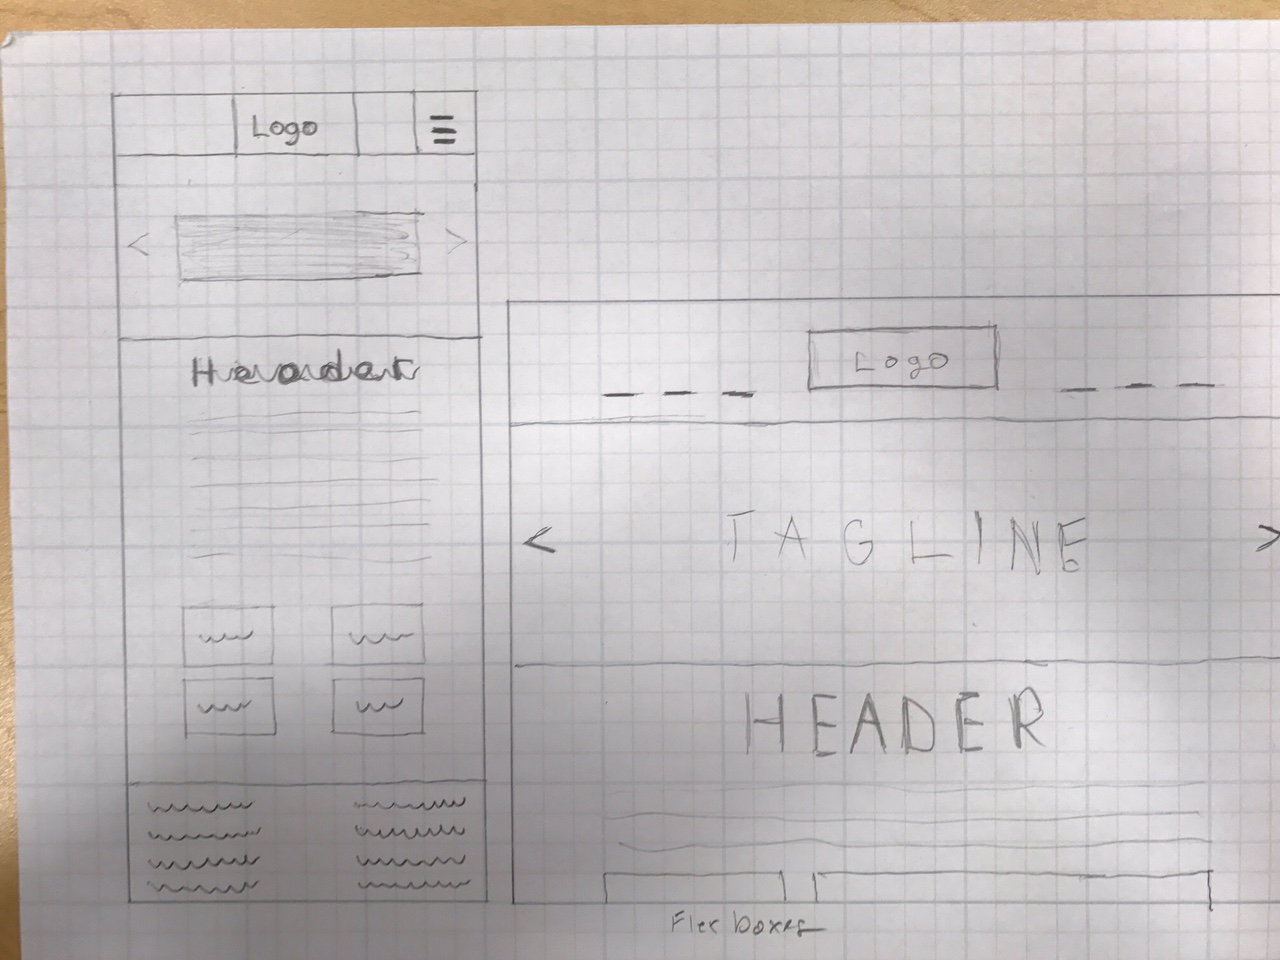 Logo
Header
Logo
TAGLINE
HEADER
Flex boxes